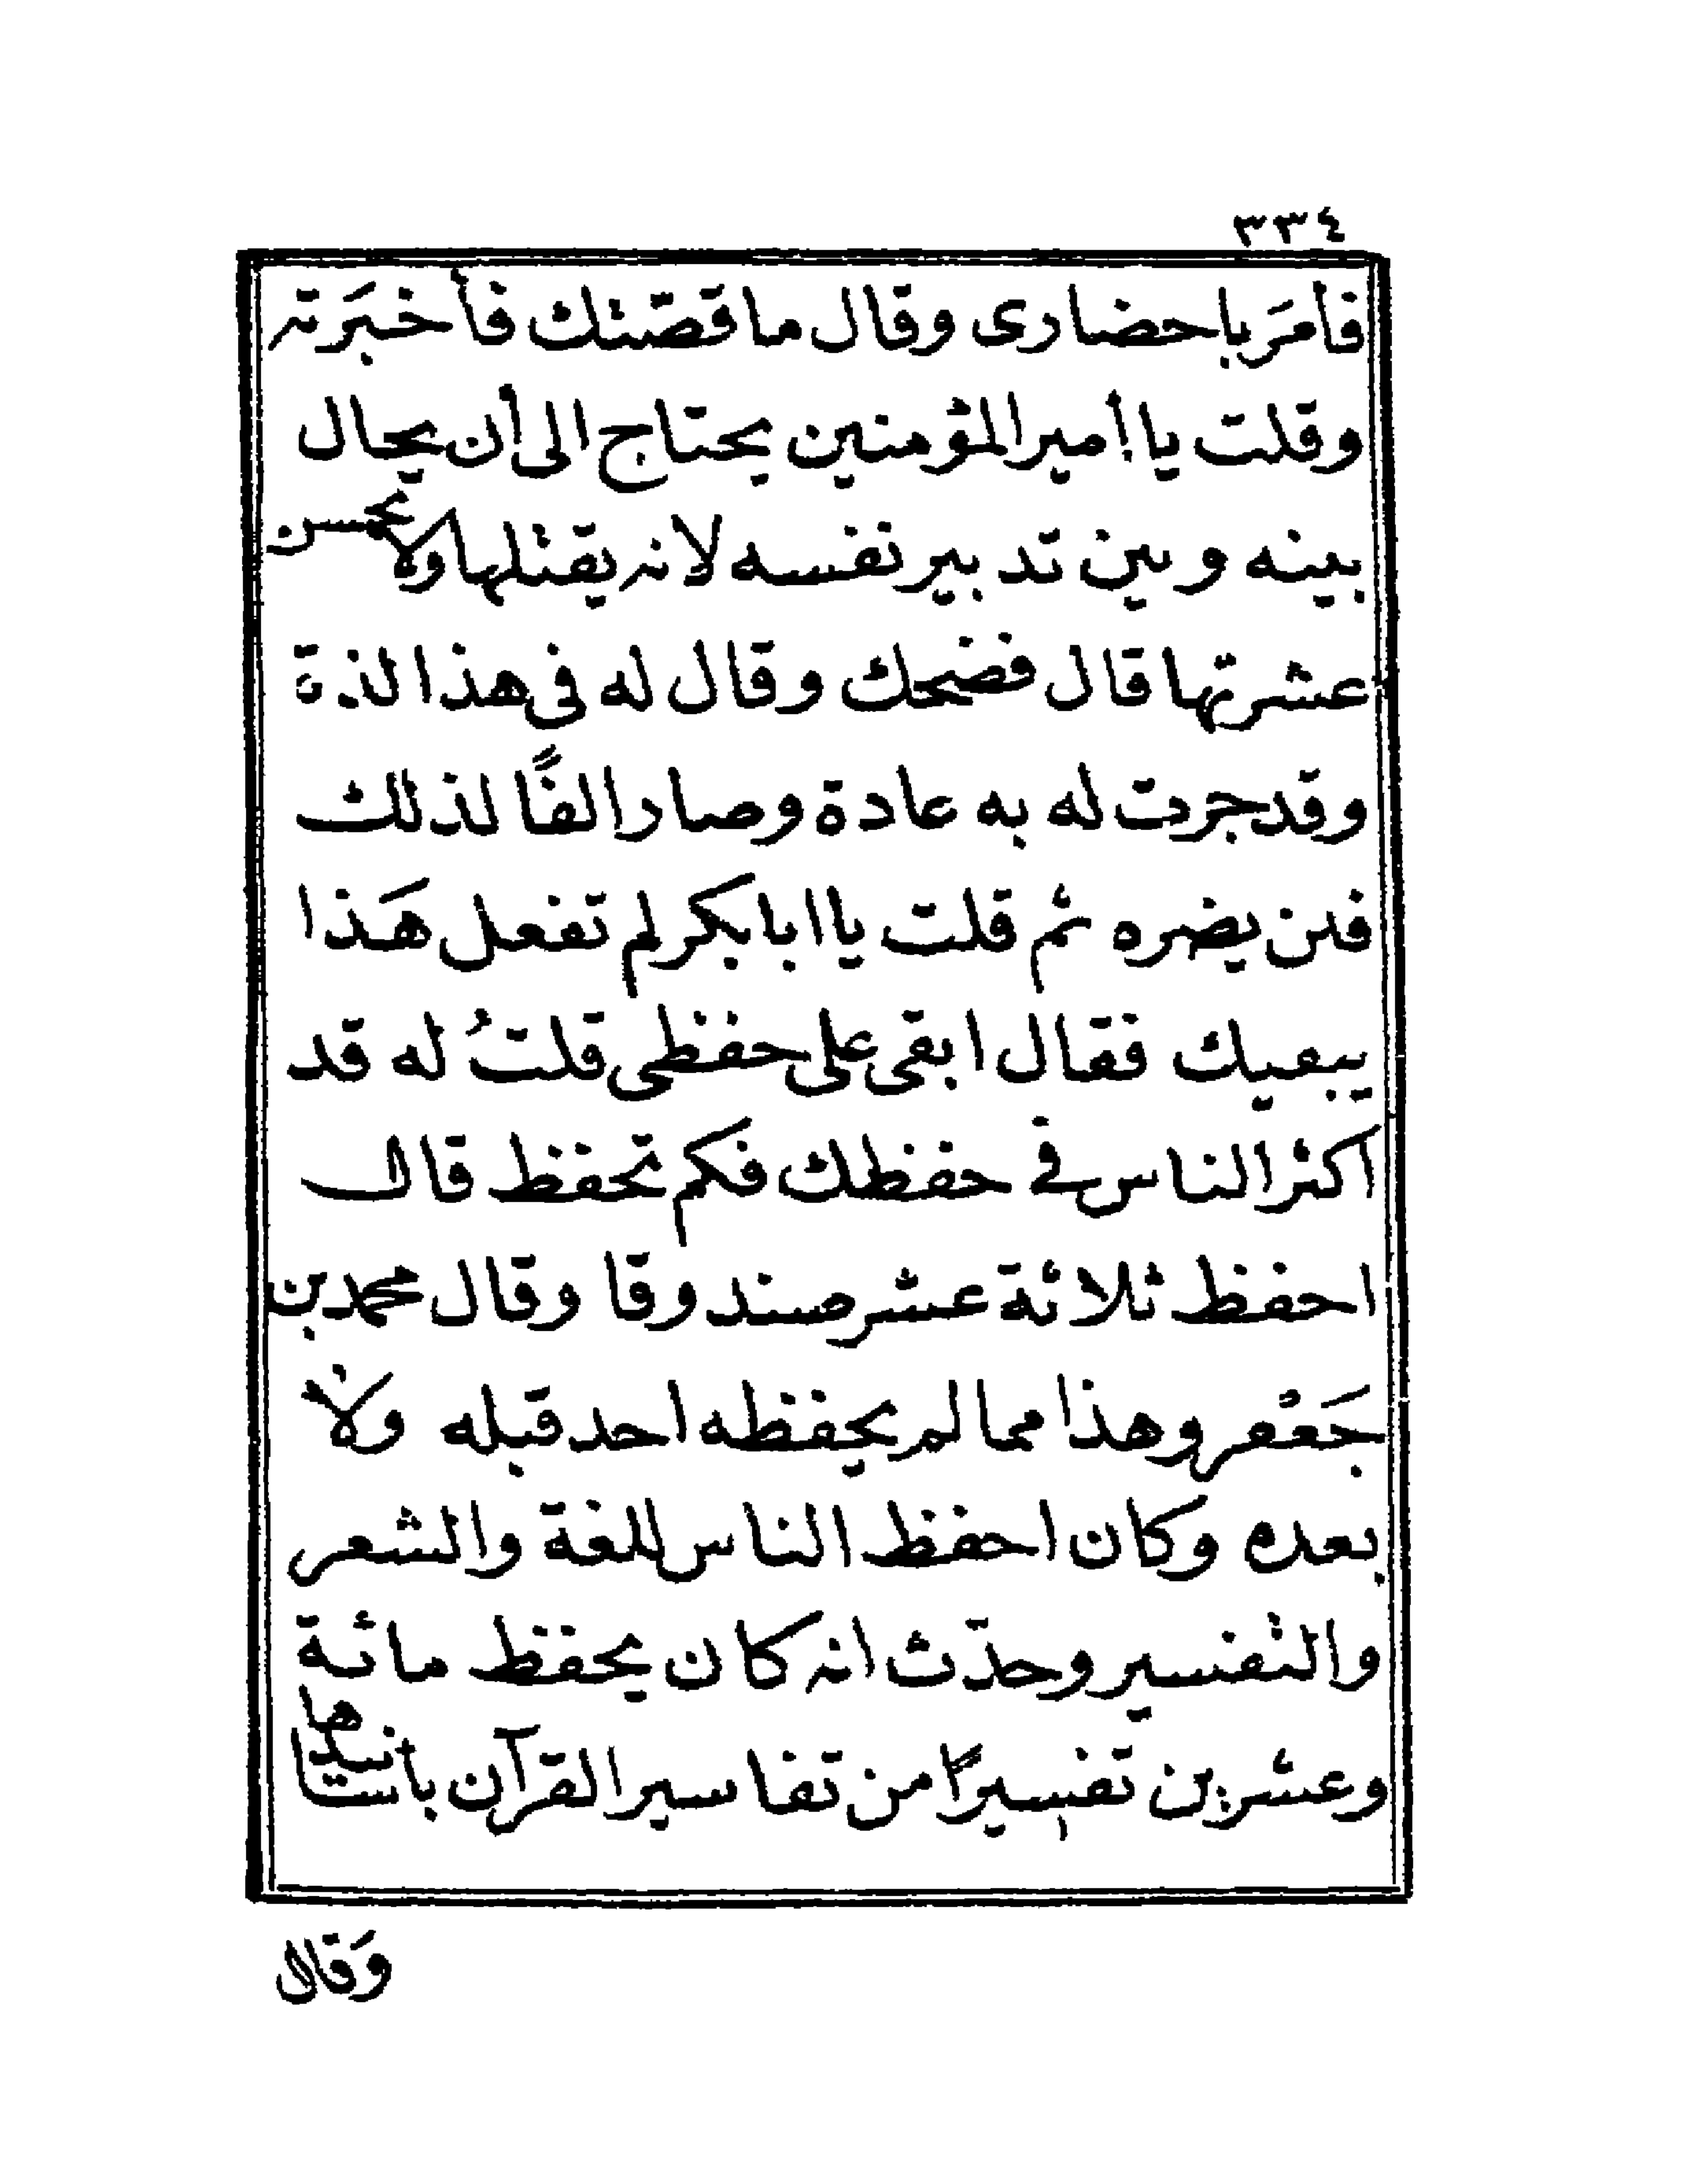 ٣٣٤
فأمَر باحضارى وقال ما قصّتك فأخبَرته
وقلت يا أمير المؤمنين يحتاج الى أن يحال
بينه وبين تدبير نفسه لانه يقتلها ولا يحسن
عشرتها قال فضحك وقال له فى هذا لذة
وقد جرت له به عادة وصار الفًا لذلك
فلن يضره ثم قلت يا ابا بكر لم تفعل هَذا
بنفسك فقال ابقى على حفظى قلتُ له قد
اكثر الناس في حفظك فكم تحفظ قال
احفظ ثلاثة عشر صندوقا وقال محمد بن
جَعْفر وهذا مما لم يحفظه احد قبله ولا
بعده وكان احفظ الناس للغة والشعر
والتفسير وحدّث انه كان يحفظ مائة
وعشرين تفسيرًا من تفاسير القرآن بأسانيدها
وَقال